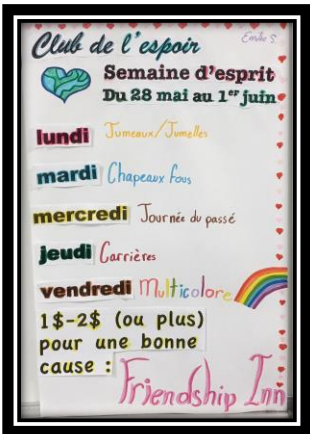 Club de l'espoir
Emilie S.
Semaine d'esprit
Du 28 mai au 1er juin
lundi Jumeaux/Jumelles
mardi Chapeaux fous
mercredi Journée du passé
jeudi Carrières
vendredi Multicolore
1$-2$ (ou plus)
pour une bonne
cause :
Friendship Inn